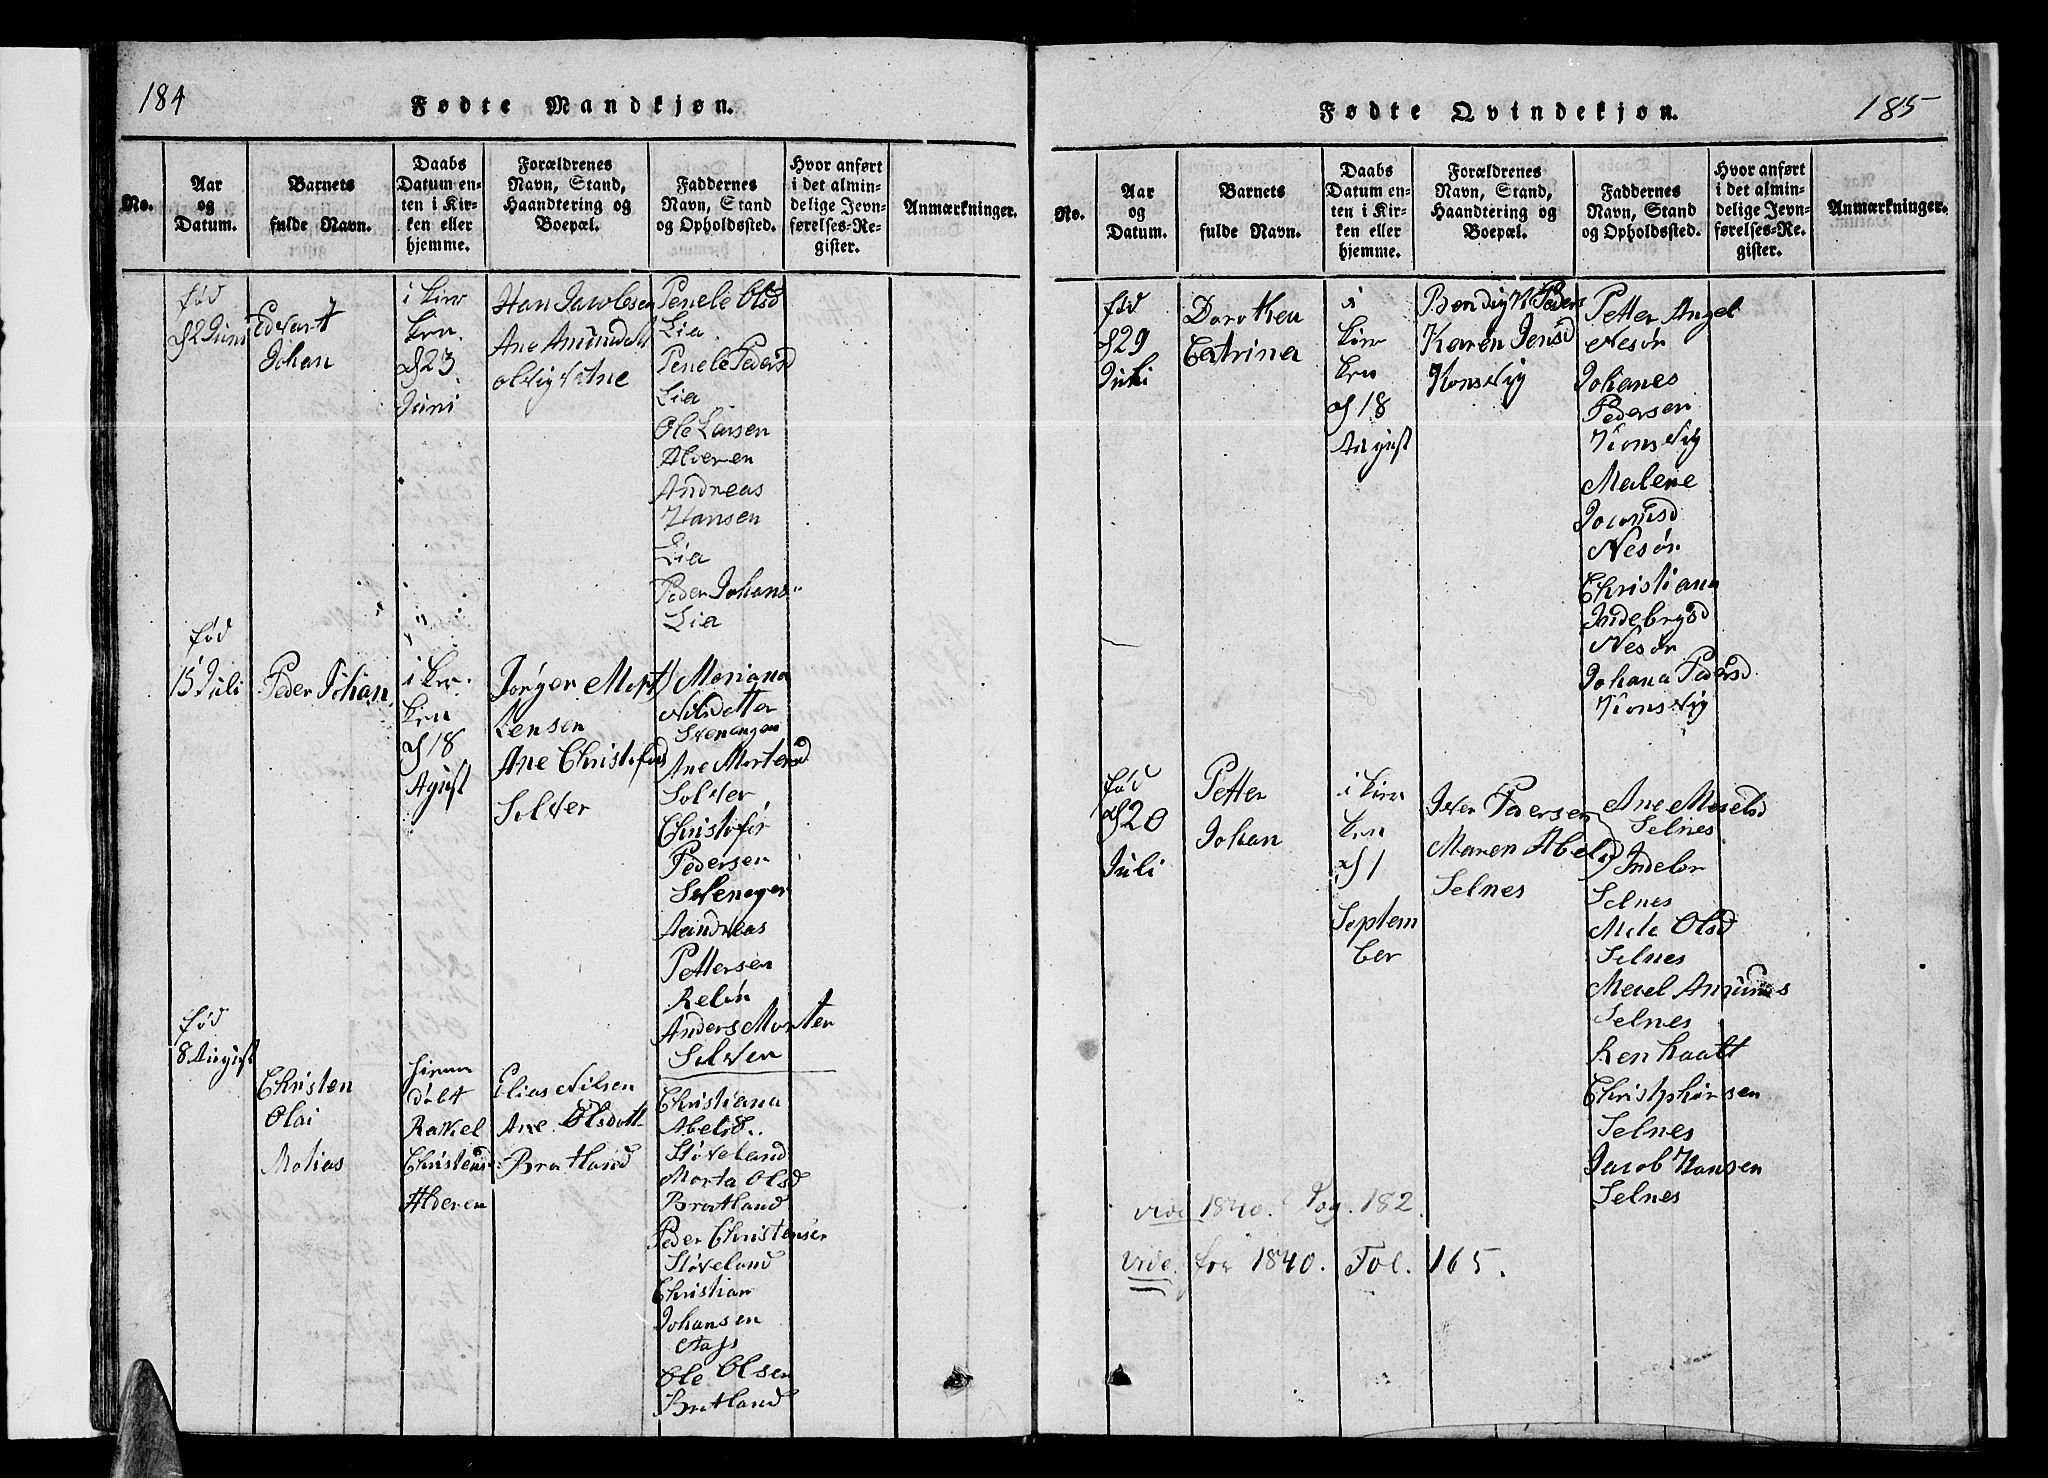 184
Fødte Mandkjøn.
No.
Aar
og
Datum.
Barnets
fulde Navn.
Daabs
Datum en-
ten i Kir-
ken eller
hjemme.
Forældrenes
Navn, Stand,
Haandtering og
Boepæl.
Faddernes
Navn, Stand
og Opholdssted.
Hvor anført
i det almin-
delige Jevn-
førelses-Re-
gister.
Anmærkninger.
fød
d 2 Juni
Edvart
Johan
i kirr
ken
d 23
Juni
Han Jacobsen
Ane Amundsd
Penele Olsd
Lia
Penele Pedersd
Lia
Ole Larsen
Alderen
Andreas
Hansen
Lia
Peder Johans
Lia
fød
15 Juli
Peder Johan
i kir
ken
d 18
Agust
Jørger Mort
tensen
Ane Christofers
Solver
Mariana
Nilsdatter
Ane Mortensd
Solver
Christofer
Pedersen
Selenager
Aandreas
Pettersen
Reløn
Anders Morten
Solver
fød
8 August
Christen
Olai
Matias
hiemme
døbt
Rakiel
Christens
Alderen
Elias Nilsen
Ane Olsdatt
Bratland
Christiana
Abelsd
Støveland
Marta Olsd
Bratland
Peder Christensen
Støveland
Christian
Johansen
Ole Olsen
Bratland
185
Fødte Qvindekjøn.
No.
Aar
og
Datum.
Barnets
fulde Navn.
Daabs
Datum en-
ten i Kir-
ken eller
hjemme.
Forældrenes
Navn, Stand,
Haandtering og
Boepæl.
Faddernes
Navn, Stand
og Opholdssted.
Hvor anført
i det almin-
delige Jevn-
førelses-Re-
gister.
Anmærkninger.
fød
d 29
Juli
Dorothea
Catrina
i
kirr
ken
d 18
August
Bendigt Peders
Karen Jensd
Konsvig
Petter Angel
Nesør
Johanes
Pedersen
Konsvig
Malene
Nesør
Christiana
Indebrygsd
Nesør
Johana Pedersd
Konsvig
fød
d 20
Juli
Petter
Johan
i kirr
ken
d 1
Septem
ber
Iver Pedersen
Maren Abelsd
Selnes
Ane
Selnes
Indebor
Selnes
Mete Olsd
Selnes
Merel Amunds
Selnes
Renhaalt
Christphørsen
Selnes
Jacob Hansen
Selnes
vide 1840. Pag. 182.
vide for 1840. Fol. 165.